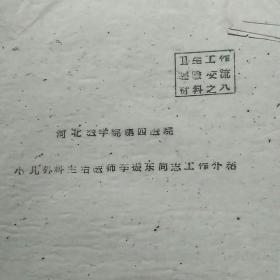 卫生工作
经验交流
材料之八
河北医学院第四医院
小儿外科主治医师李振东同志工作介绍